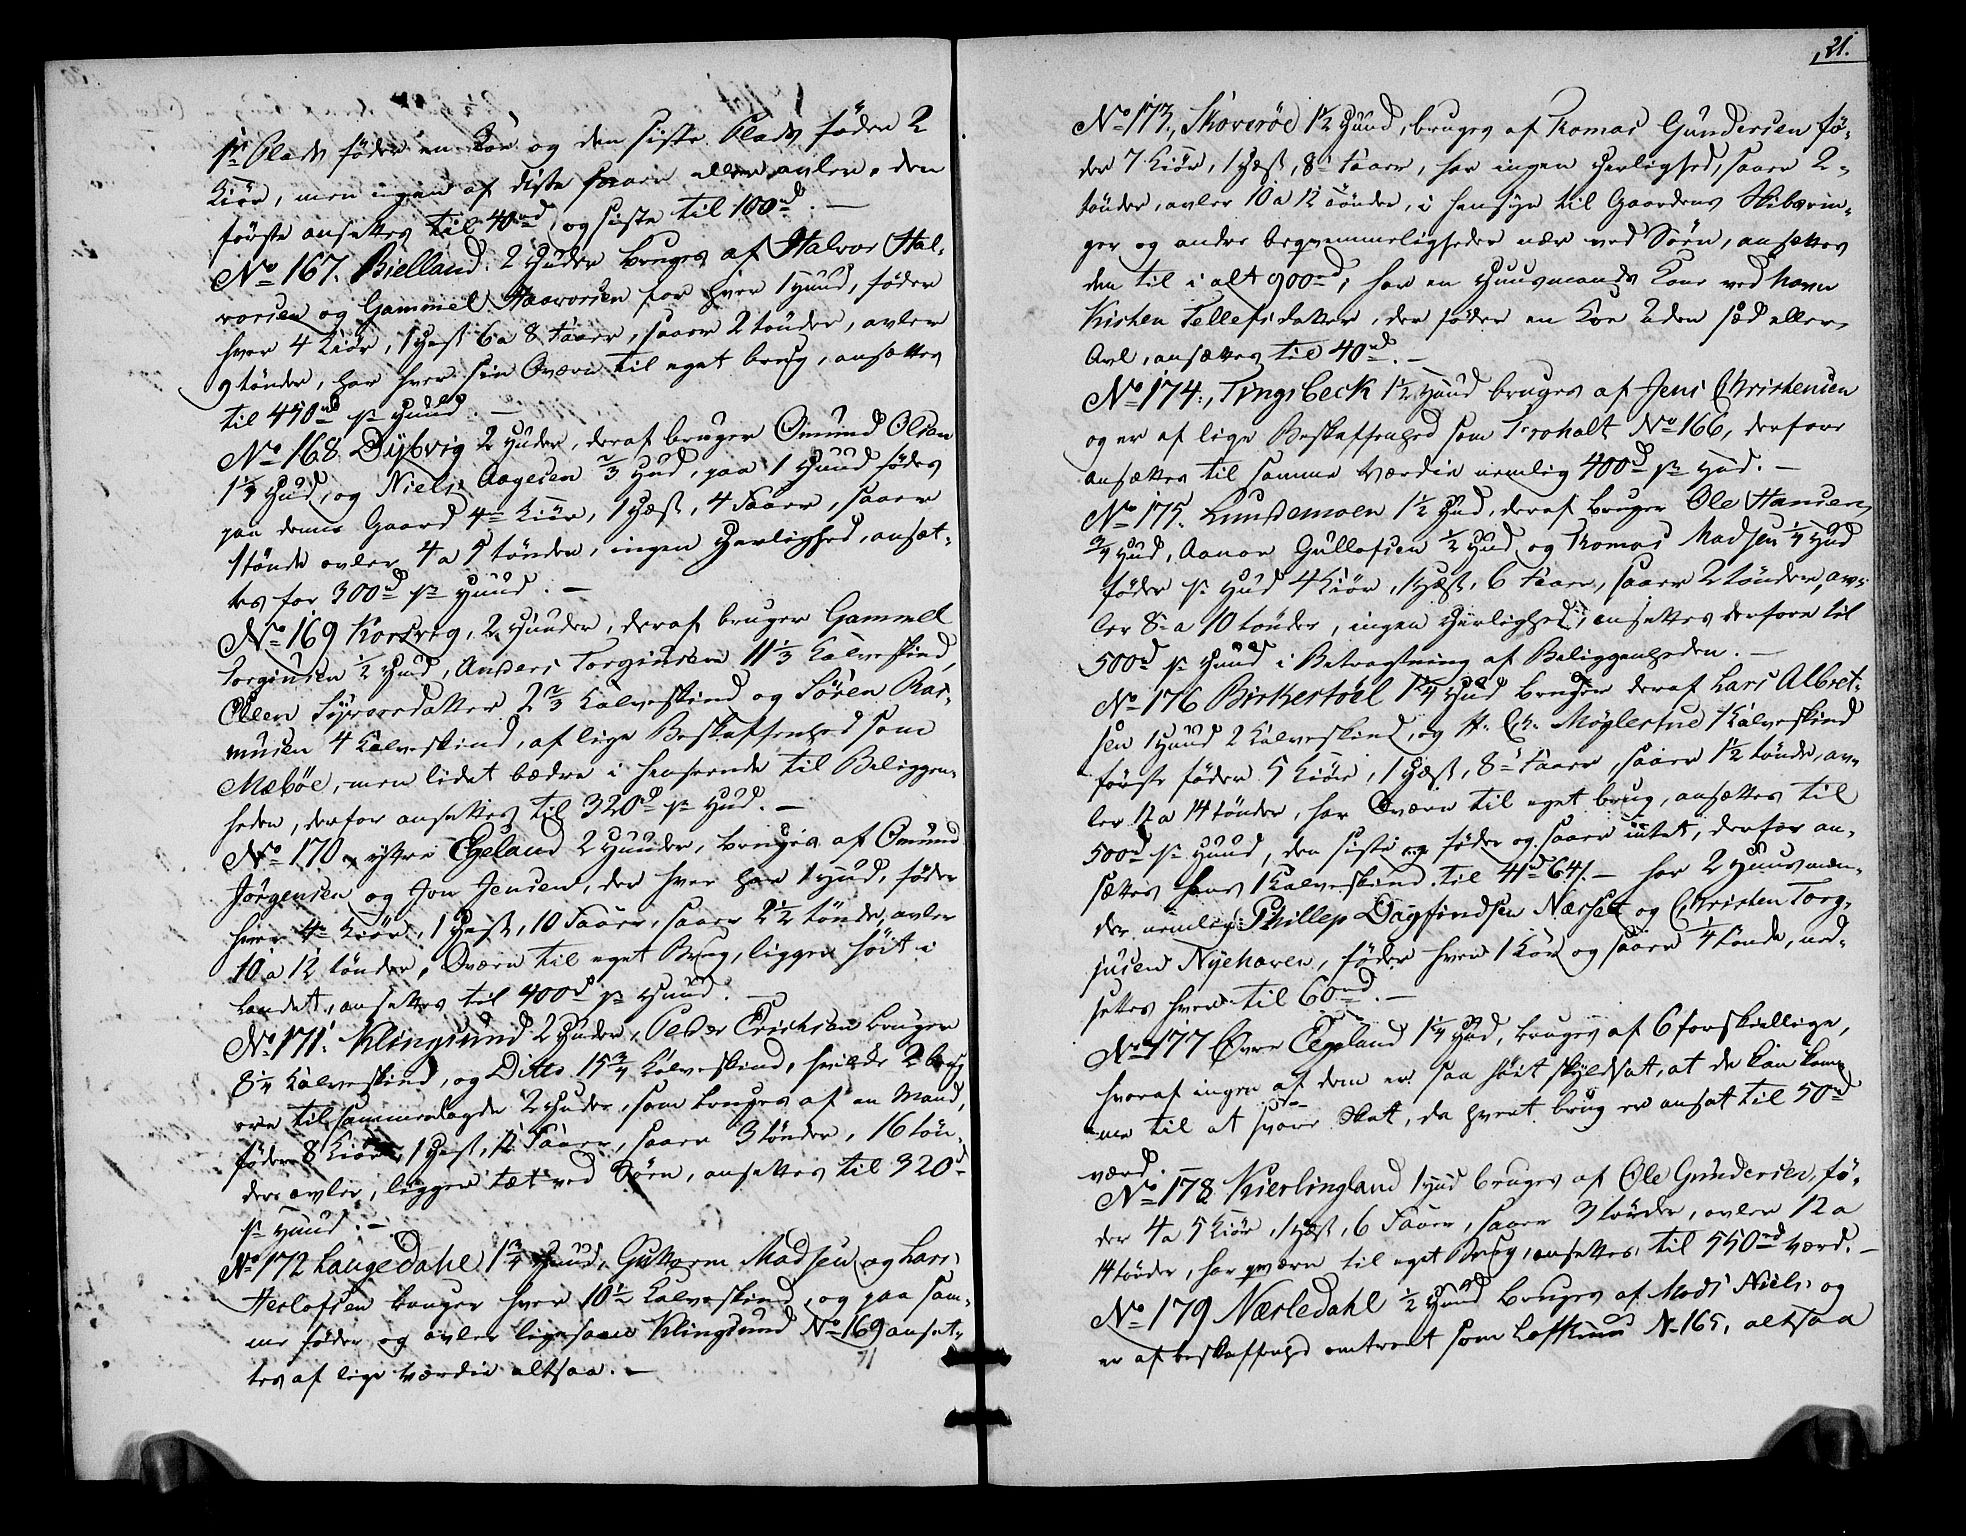 1ste Plads föder en Koe og den siste Plads föder 2
Kiör, men ingen af disse saaer eller avler, den
förste ansættes til 40rd, og siste til 100rd. —
No 167. Bielland. 2 Huder bruges af Halvor Hal-
vorsen og Gammel Haavorsen for hver 1 Huud, föder
hver 4 Kiör, 1 Hest 6 a 8 Faaer, saaer 2 tönder, avler
9 tönder, har hver sin Qværn til eget brug, ansættes
til 450rd pr Huud. —
No 168 Dybvig 2 Huder, deraf bruger Omund Olsen
1 1/3 Hud, og Niels Aagesen 2/3 Hud, paa 1 Huud födes
paa denne Gaard 4 Kiör, 1 Hest, 4 Faaer, saaer
1 tönde avler 4 a 5 tönder, ingen Herlighed, ansæt-
tes for 300rd pr Huud. —
No 169 Korsvig, 2 Huuder, deraf bruger Gammel
Torginsen 1/2 Hud, Anders Torginsen 11 1/3 Kalveskind,
Ellen Syversdatter 2 2/3 Kalveskind og Sören Ras-
musen 4 Kalveskind, af lige Beskaffenhed som
Mæböe, men lidet bædre i henseende til Beliggen-
heden, derfor ansættes til 320rd pr Hud. —
No 170 ystre Egeland 2 Huuder, bruges af Omund
Jörgensen og Jon Jensen, der hver har 1 Hud, föder
hver 4 Kiör, 1 Hest, 10 Faaer, saaer 2 1/2 tönde, avler
10 a 12 tönder, Qværn til eget Brug, ligger höit i
Landet, ansættes til 400rd pr Huud. —
No 171. Klingsund 2 Huder, Peder Erichsen bruger
8 1/4 Kalveskind, og Ditto 15 3/4 Kalveskind, hvilke 2 brug
ere tilsammenlagde 2 Huder, som bruges af en Mand,
föder 8 Kiör, 1 Hest, 12 Faaer, saaer 3 tönder, 16 tön-
der avler, ligger tæt ved Söen, ansættes til 320rd
pr Huud. —
No 172 Langedahl 1 3/4 Huud, Guttorm Madsen og Lars
Herlofsen bruger hver 10 1/2 Kalveskind, og paa sam-
me föder og avler ligesom Klingsund No 169 ansæt-
tes af lige værdie altsaa. —
21.
No 173, Skoveröe 1 1/2 Huud, bruges af Tomas Gundersen fö-
der 7 Kiör, 1 Hest, 8 Faaer, har ingen Herlighed, saaer 2
tönder, avler 10 a 12 tönder, i hensyn til Gaardens Skibsrin-
ger og andre beqvemmeligheder nær ved Söen, ansættes
den til i alt 900rd, har en Huusmands Kone ved Navn
Kisten Tellefsdatter, der föder en Koe uden sæd eller
Avl, ansættes til 40rd. —
No 174, Tingsbeck 1 1/2 Huud bruges af Jens Christensen
og er af lige Beskaffenhed som Troholt No 166, derfore
ansættes til samme værdie nemlig 400rd pr Hud. —
No 175. Lundemoen 1 1/2 Hud, deraf bruger Ole Hansen
3/4 Hud, Aanon Gullofsen 1/2 Hud og Tomas Madsen 1/4 Hud
föder pr Hud 4 Kiör, 1 Hest, 6 Faaer, saaer 2 tönder, av-
ler 8 a 10 tönder, ingen Herlighed, ansættes derfore til
500rd pr Huud i Betragtning af Beliggenheden. —
No 176 Birketöel 1 1/4 Huud bruger deraf Lars Albret-
sen 1 Huud 2 Kalveskind, og H. Chr. Möglestue 1 Kalveskind
förste föder 5 Kiör, 1 Hest, 8 Faaer, saaer 1 1/2 tönde, av-
ler 12 a 14 tönder, har Qværn til eget brug, ansættes til
500rd pr Huud, den siste föder og saaer intet, derfor an-
sættes hans 1 Kalveskind til 41rd 64s. — har 2 Huusmæn-
der nemlig: Phillep Dagfindsen Næsset og Christen Torg-
jusen Nyehaven, föder hver 1 Koe og saaer 1/4 tönde, an-
settes hver til 60rd. —
No 177 Övre Egeland 1 1/4 Hud, bruges af 6 forskiellige,
hvoraf ingen af dem er saa höit skyldsat, at de kan kom-
me til at svare Skat, da hvert brug er ansat til 50rd
værd.
No 178 Kierlingland 1 Hud bruges af Ole Gundersen, fö-
der 4 a 5 Kiör, 1 Hest, 6 Faaer, saaer 3 tönder, avler 12 a
14 tönder, har qværn til eget Brug, ansættes til 550rd værd. —
No 179 Næsledahl 1/2 Huud bruges af Mads Niels: og
er af beskaffenhed omtrent som Loftknus No 165, altsaa